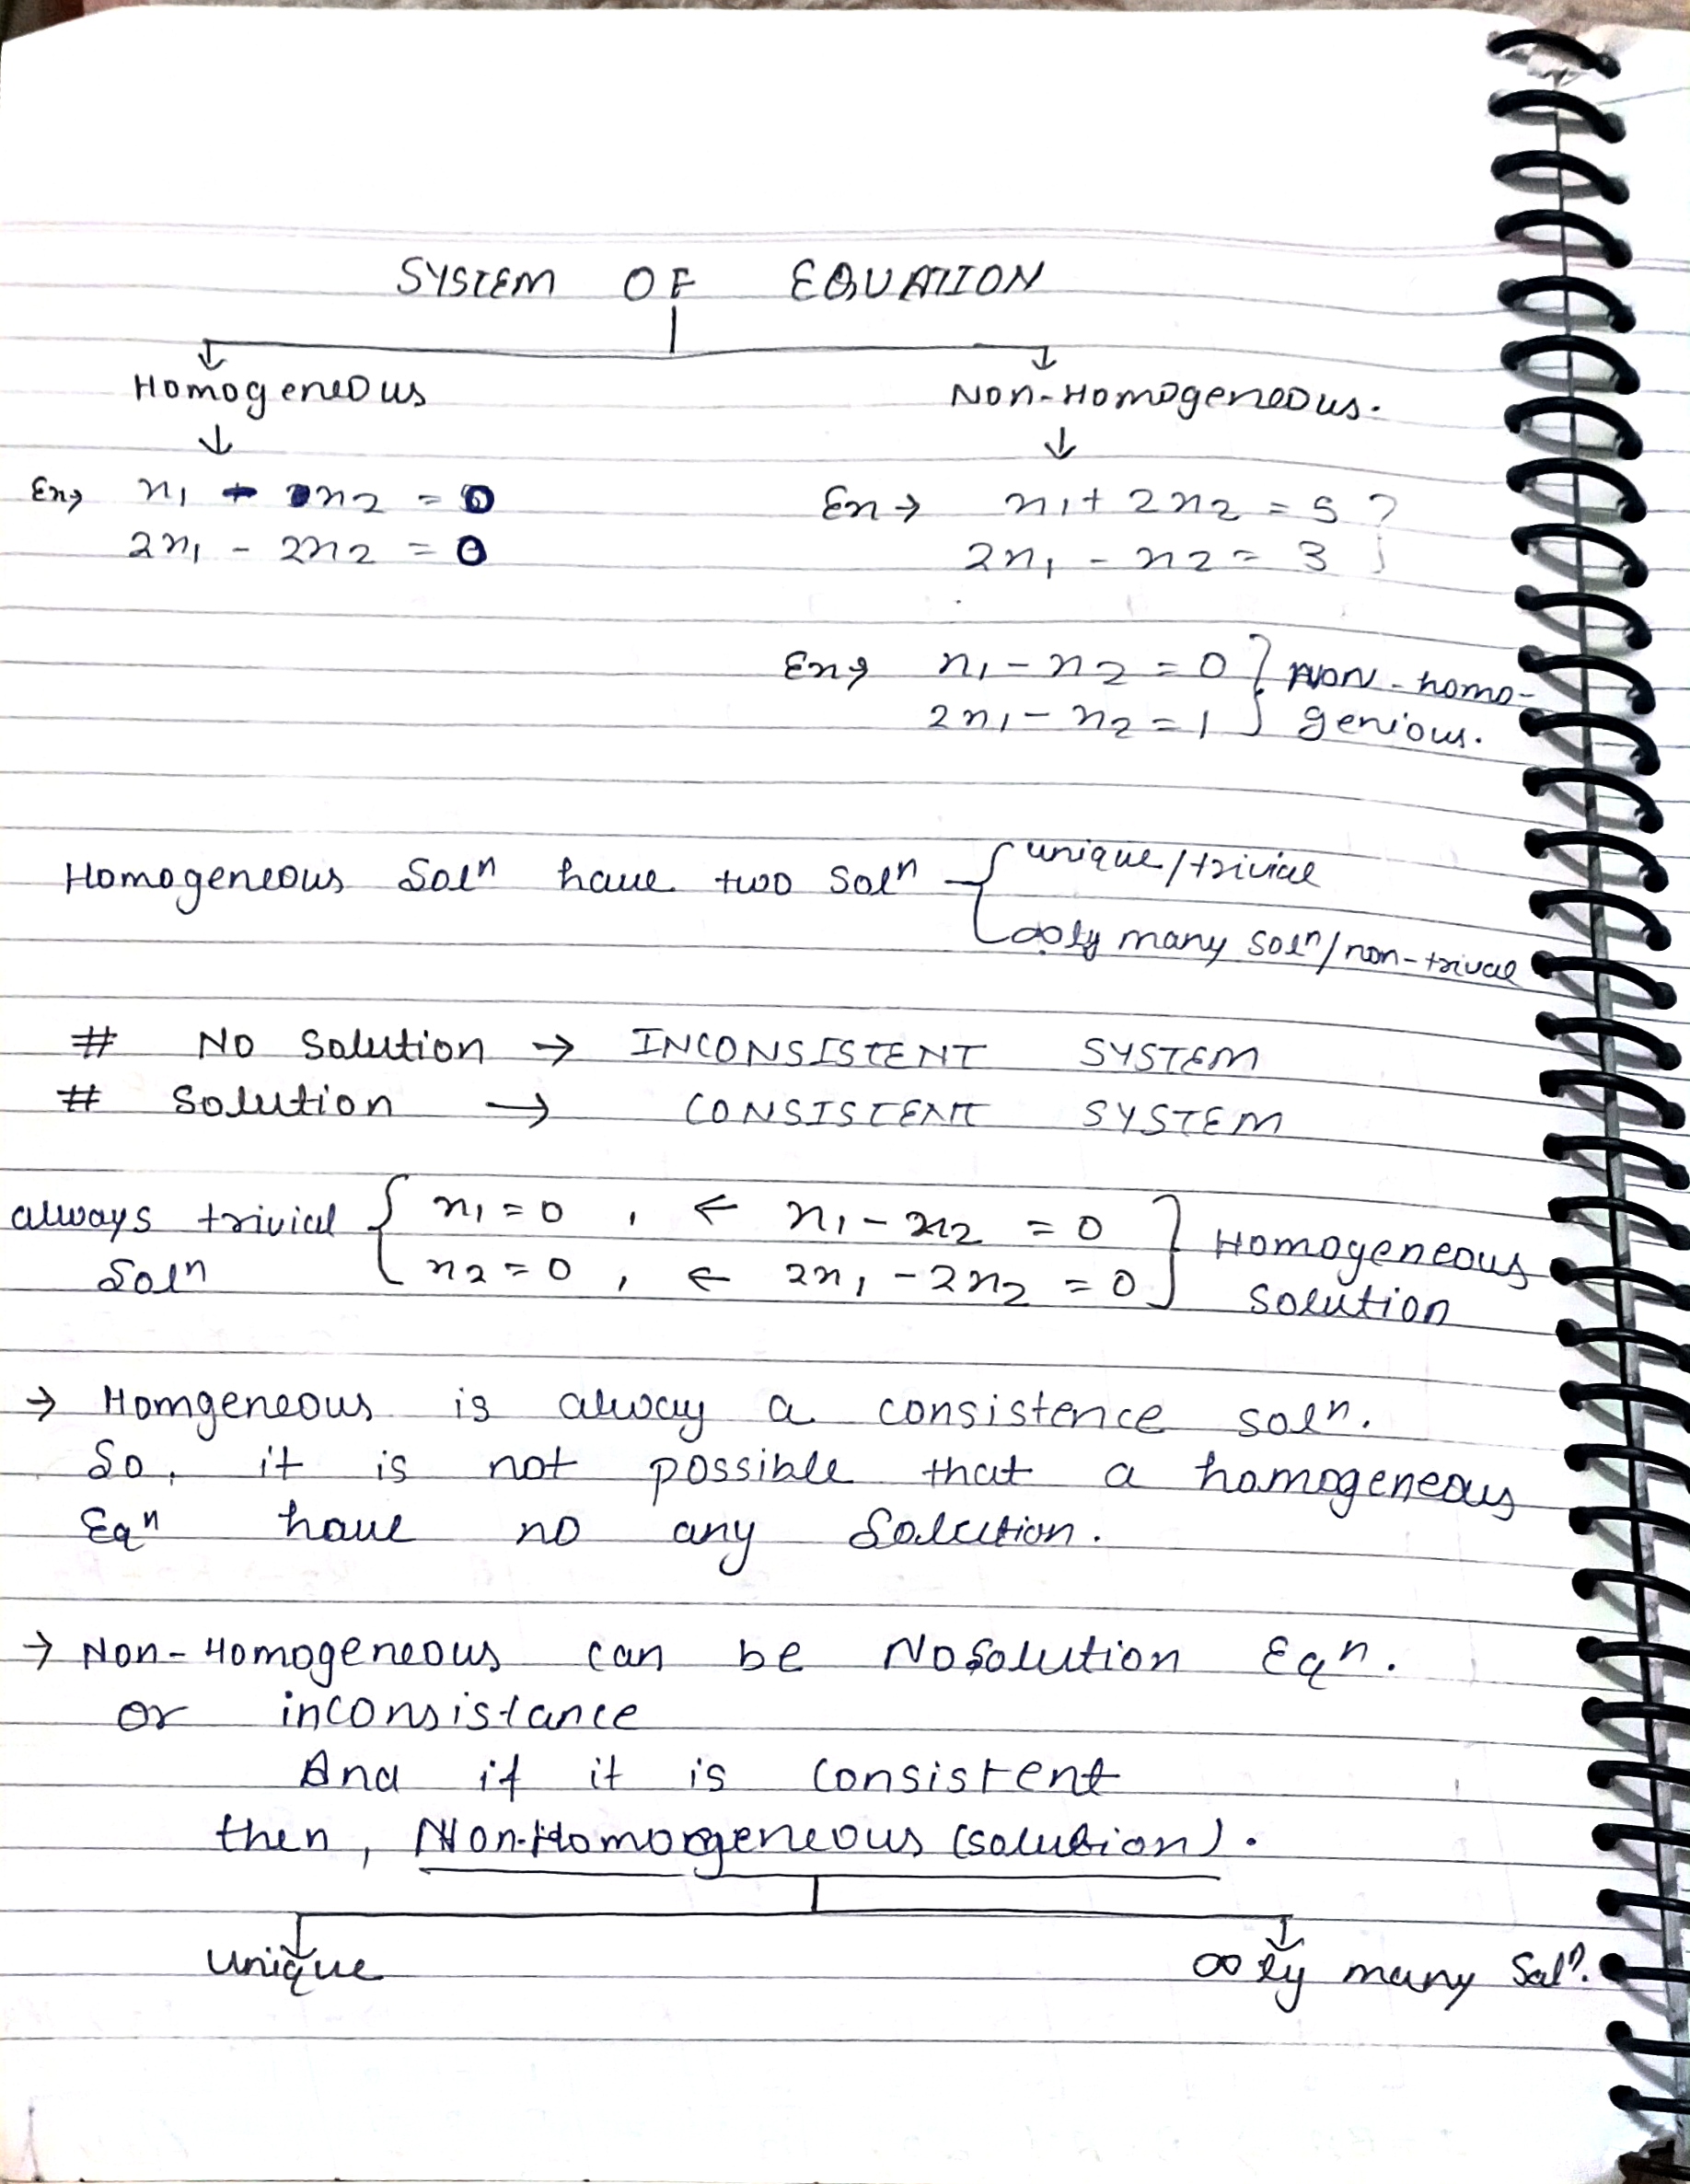 SYSTEM OF EQUATION
Homogeneous Non-Homogeneous.
Ex→ x1 + x2 = 0 Ex→ x1 + 2x2 = 5
2x1 - 2x2 = 0 2x1 - x2 = 3
Ex→ x1 - x2 = 0 } Non-homo-
2x1 - x2 = 1 } genious.
Homogeneous Solⁿ have two solⁿ { unique/trivial
∞ly many solⁿ/non-trival
# No Solution → INCONSISTENT SYSTEM
# Solution → CONSISTENT SYSTEM
always trivial { x1 = 0 , ← x1 - x2 = 0 } Homogeneous
Solⁿ x2 = 0 , ← 2x1 - 2x2 = 0 solution
→ Homgeneous is alway a consistence solⁿ.
So, it is not possible that a homogeneous
Eqⁿ have no any Solution.
→ Non-Homogeneous can be No Solution Eqⁿ.
or inconsistance
And if it is consistent
then, Non-Homorgeneous (solution).
Unique ∞ly many Solⁿ.